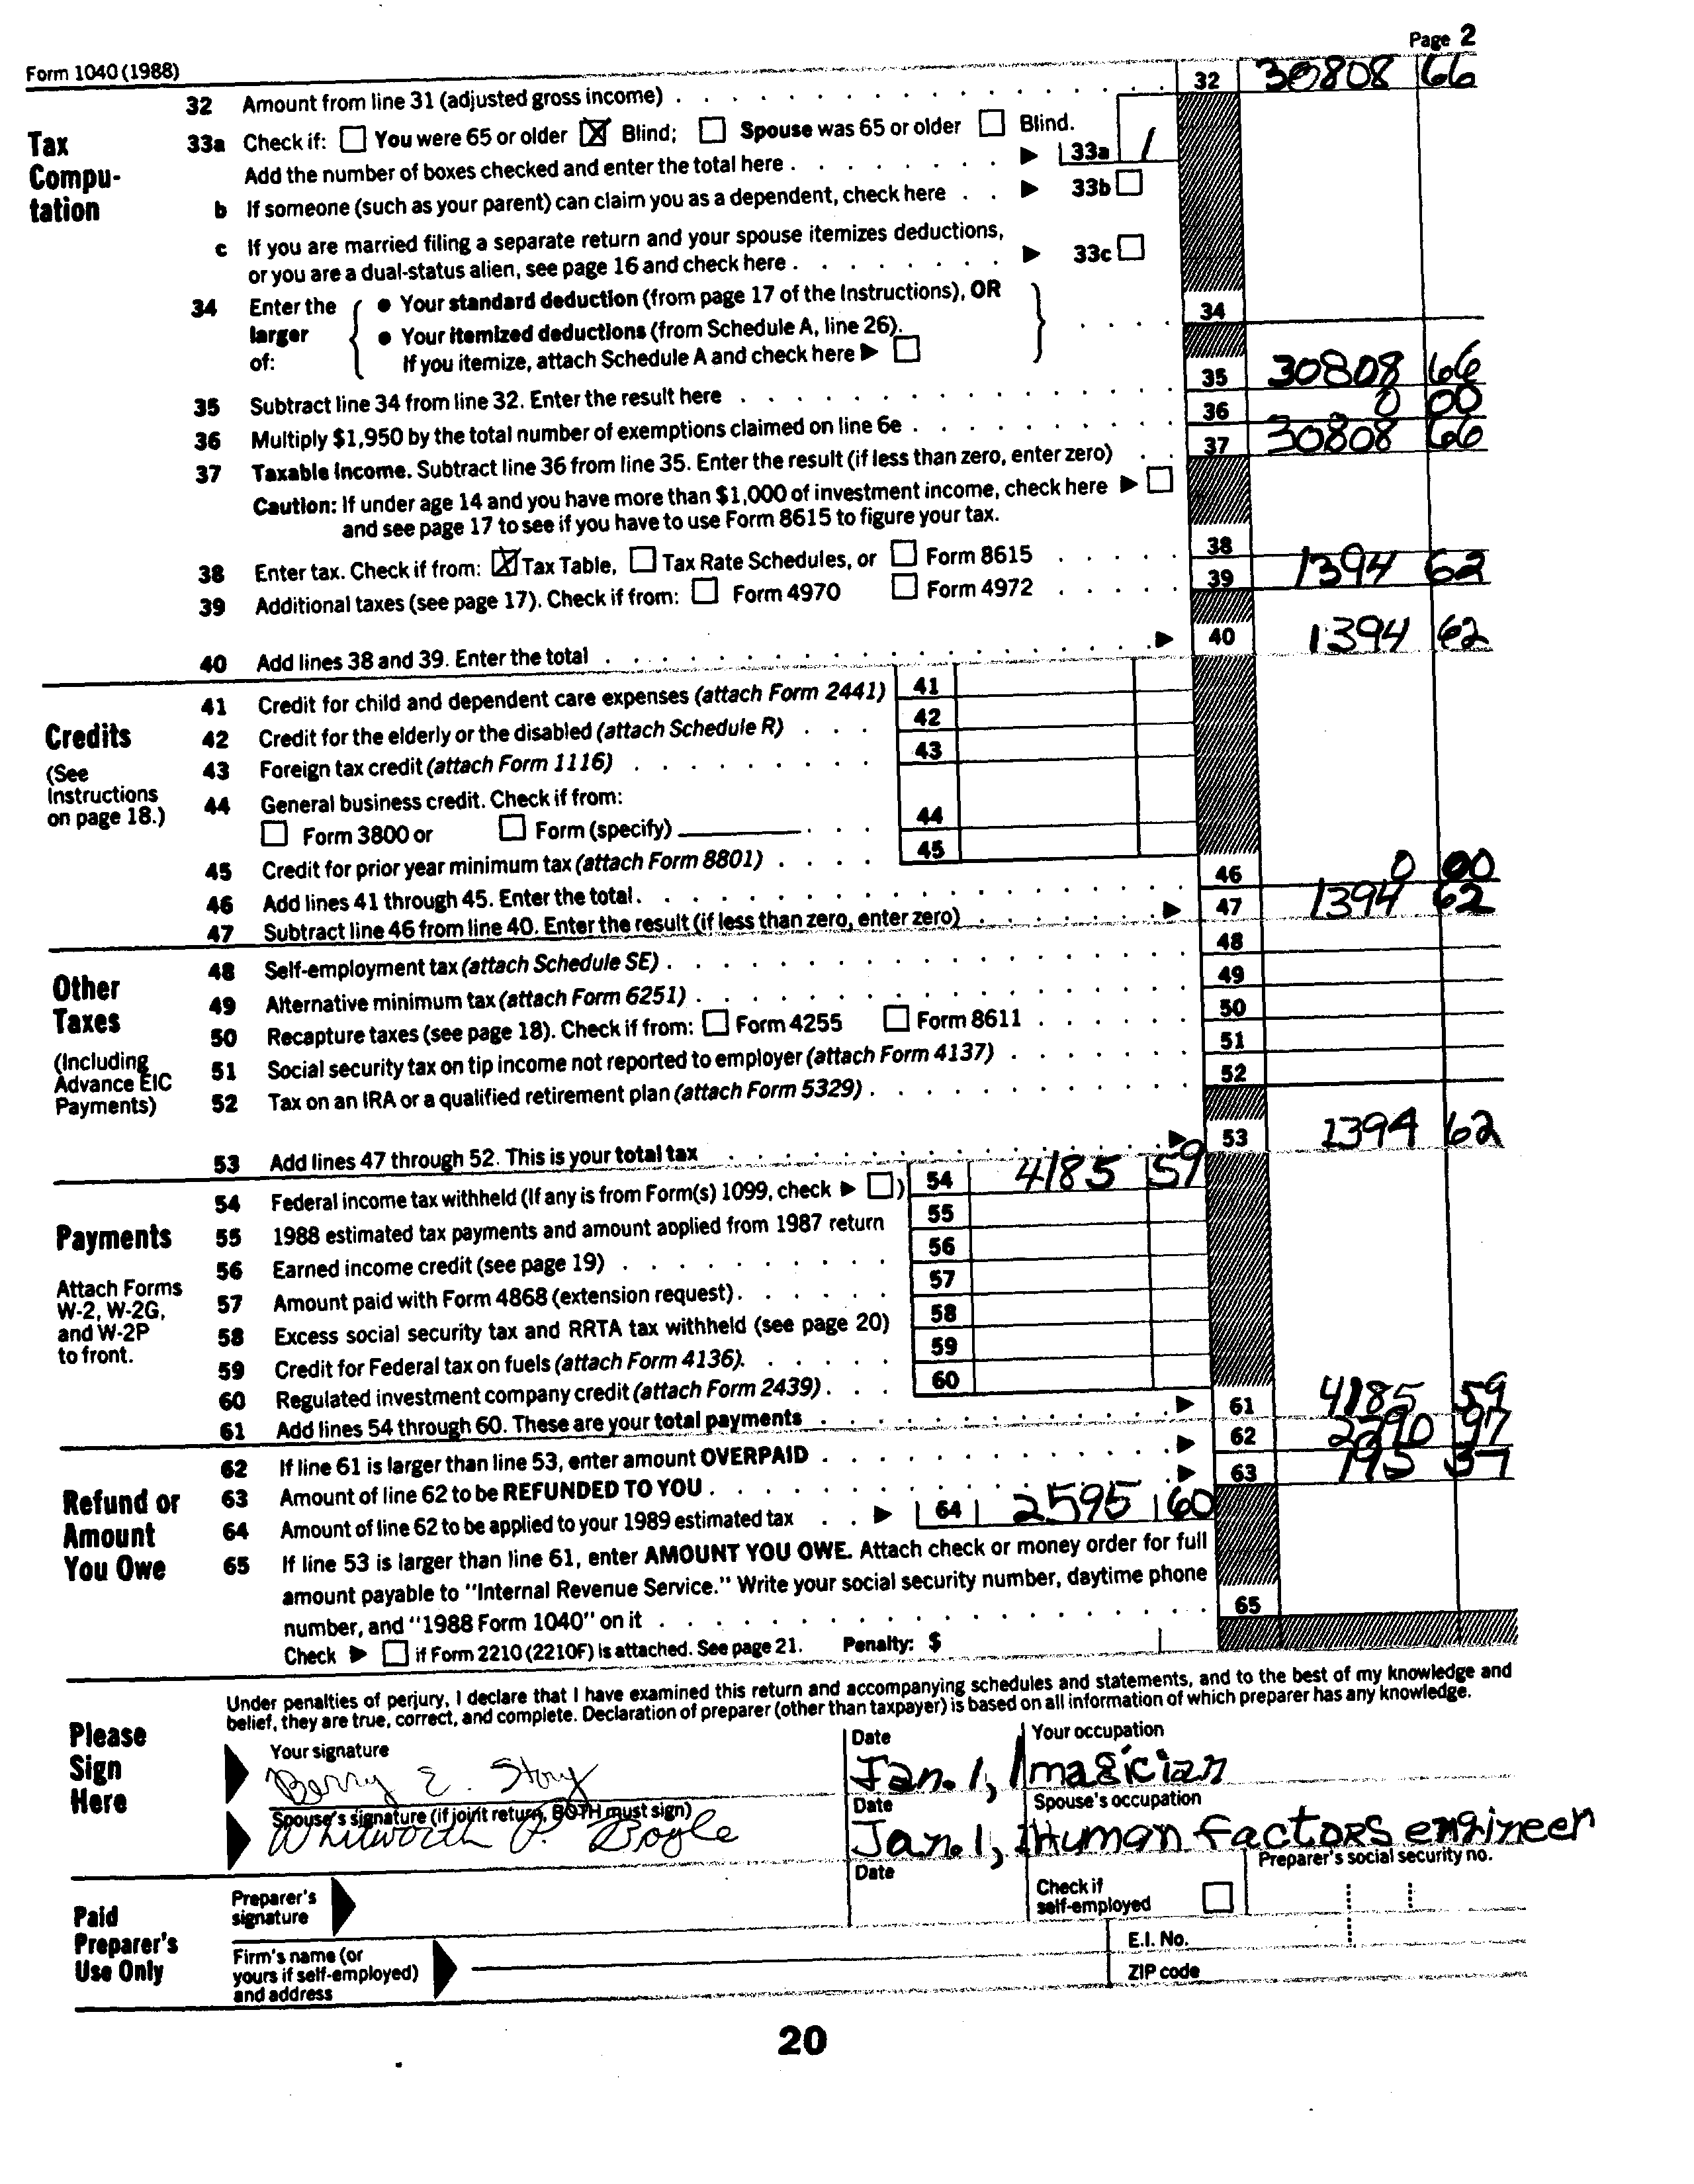 Form 1040 (1988) Page 2
Tax Computation
32 Amount from line 31 (adjusted gross income) 32 30808 66
33a Check if: You were 65 or older Blind; Spouse was 65 or older Blind.
Add the number of boxes checked and enter the total here 33a 1
b If someone (such as your parent) can claim you as a dependent, check here 33b
c If you are married filing a separate return and your spouse itemizes deductions,
or you are a dual-status alien, see page 16 and check here 33c
34 Enter the larger of: • Your standard deduction (from page 17 of the Instructions), OR
• Your itemized deductions (from Schedule A, line 26).
If you itemize, attach Schedule A and check here 34
35 Subtract line 34 from line 32. Enter the result here 35 30808 66
36 Multiply $1,950 by the total number of exemptions claimed on line 6e 36 0 00
37 Taxable income. Subtract line 36 from line 35. Enter the result (if less than zero, enter zero) 37 30808 66
Caution: If under age 14 and you have more than $1,000 of investment income, check here
and see page 17 to see if you have to use Form 8615 to figure your tax.
38 Enter tax. Check if from: Tax Table, Tax Rate Schedules, or Form 8615 38 1394 62
39 Additional taxes (see page 17). Check if from: Form 4970 Form 4972 39
40 Add lines 38 and 39. Enter the total 40 1394 62
Credits
(See Instructions on page 18.)
41 Credit for child and dependent care expenses (attach Form 2441) 41
42 Credit for the elderly or the disabled (attach Schedule R) 42
43 Foreign tax credit (attach Form 1116) 43
44 General business credit. Check if from:
Form 3800 or Form (specify) 44
45 Credit for prior year minimum tax (attach Form 8801) 45
46 Add lines 41 through 45. Enter the total 46 0 00
47 Subtract line 46 from line 40. Enter the result (if less than zero, enter zero) 47 1394 62
Other Taxes
(Including Advance EIC Payments)
48 Self-employment tax (attach Schedule SE) 48
49 Alternative minimum tax (attach Form 6251) 49
50 Recapture taxes (see page 18). Check if from: Form 4255 Form 8611 50
51 Social security tax on tip income not reported to employer (attach Form 4137) 51
52 Tax on an IRA or a qualified retirement plan (attach Form 5329) 52
53 Add lines 47 through 52. This is your total tax 53 1394 62
Payments
Attach Forms W-2, W-2G, and W-2P to front.
54 Federal income tax withheld (If any is from Form(s) 1099, check ) 54 4185 59
55 1988 estimated tax payments and amount applied from 1987 return 55
56 Earned income credit (see page 19) 56
57 Amount paid with Form 4868 (extension request) 57
58 Excess social security tax and RRTA tax withheld (see page 20) 58
59 Credit for Federal tax on fuels (attach Form 4136) 59
60 Regulated investment company credit (attach Form 2439) 60
61 Add lines 54 through 60. These are your total payments 61 4185 59
Refund or Amount You Owe
62 If line 61 is larger than line 53, enter amount OVERPAID 62 2790 97
63 Amount of line 62 to be REFUNDED TO YOU 63 195 37
64 Amount of line 62 to be applied to your 1989 estimated tax 64 2595 60
65 If line 53 is larger than line 61, enter AMOUNT YOU OWE. Attach check or money order for full
amount payable to "Internal Revenue Service." Write your social security number, daytime phone
number, and "1988 Form 1040" on it 65
Check if Form 2210 (2210F) is attached. See page 21. Penalty: $
Please Sign Here
Under penalties of perjury, I declare that I have examined this return and accompanying schedules and statements, and to the best of my knowledge and
belief, they are true, correct, and complete. Declaration of preparer (other than taxpayer) is based on all information of which preparer has any knowledge.
Your signature Date Your occupation
Berry E. Story Jan. 1, magician
Spouse's signature (if joint return, BOTH must sign) Date Spouse's occupation
Whitworth P. Bogle Jan. 1, Human factors engineer
Paid Preparer's Use Only
Preparer's signature Date Check if self-employed Preparer's social security no.
Firm's name (or yours if self-employed) and address E.I. No.
ZIP code
20